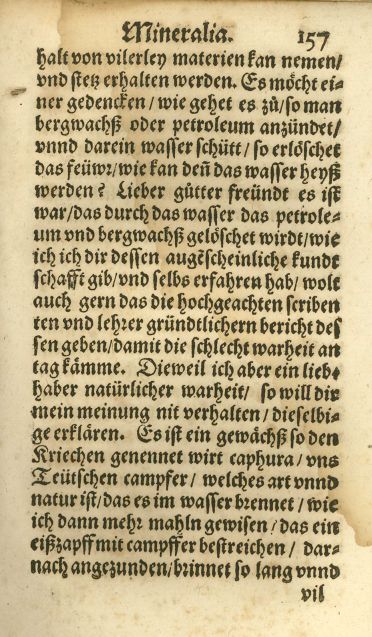 Mineralia. 157
halt von vilerley materien kan nemen/
vnd stetz erhalten werden. Es möcht ei⸗
ner gedencken / wie gehet es zů/so man
bergwachß oder petroleum anzündet/
vnnd darein wasser schütt / so erlöschet
das feüwr/wie kan deñ das wasser heyß
werden? Lieber gütter freündt es ist
war/das durch das wasser das petrole⸗
um vnd bergwachß gelöschet wirdt/wie
ich ich dir dessen augẽscheinliche kundt
schafft gib/vnd selbs erfahren hab/ wolt
auch gern das die hochgeachten scriben
ten vnd lehrer gründtlichern bericht des
sen geben/damit die schlecht warheit an
tag kämme. Dieweil ich aber ein lieb⸗
haber natürlicher warheit/ so will dir
mein meinung nit verhalten / dieselbi⸗
ge erklären. Es ist ein gewächß so den
Kriechen genennet wirt caphura/ vns
Teütschen campfer/ welches art vnnd
natur ist/das es im wasser brennet / wie
ich dann mehr mahln gewisen / das ein
eißzapff mit campffer bestreichen / dar⸗
nach angezunden/brinnet so lang vnnd
vil